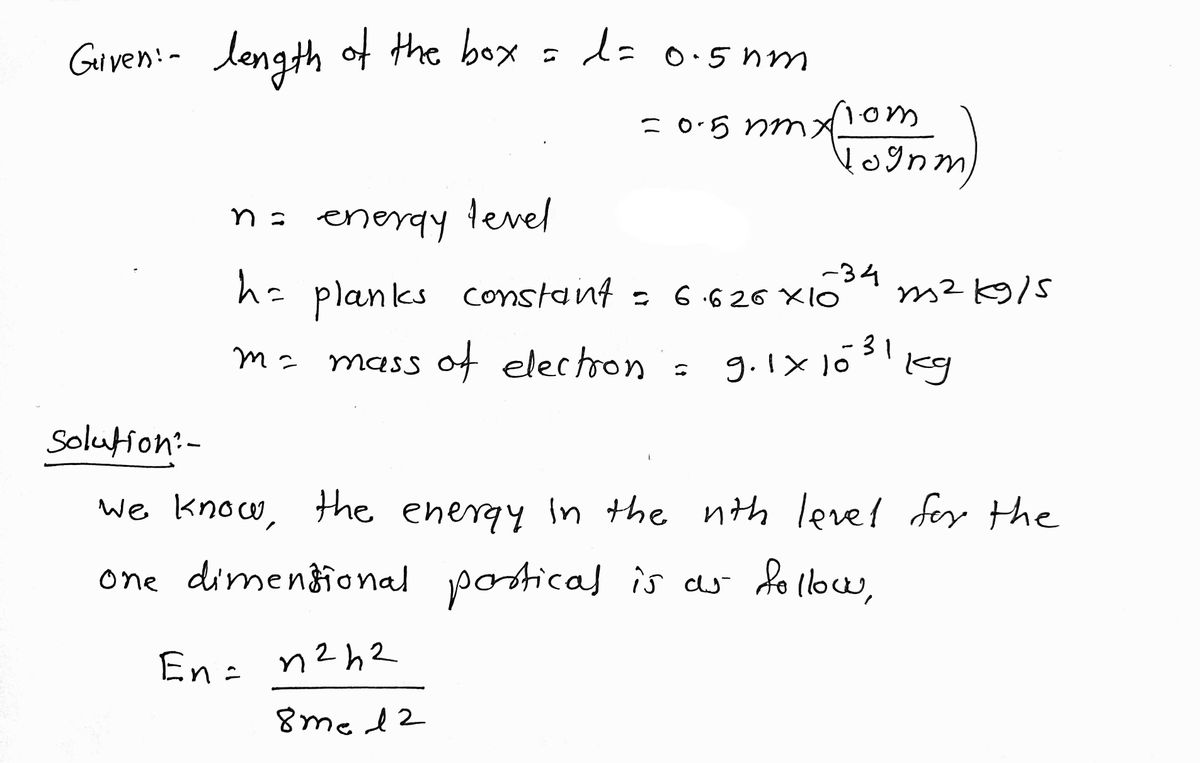 Given:- length of the box = l = 0.5 nm
= 0.5 nm × (1.0m / 109nm)
n = energy level
h = planks constant = 6.626 × 10⁻³⁴ m2 kg/s
m = mass of electron = 9.1 × 10⁻³¹ kg
Solution:-
We know, the energy in the nth level for the
one dimensional partical is as follow,
En = n2h2 / 8me l2